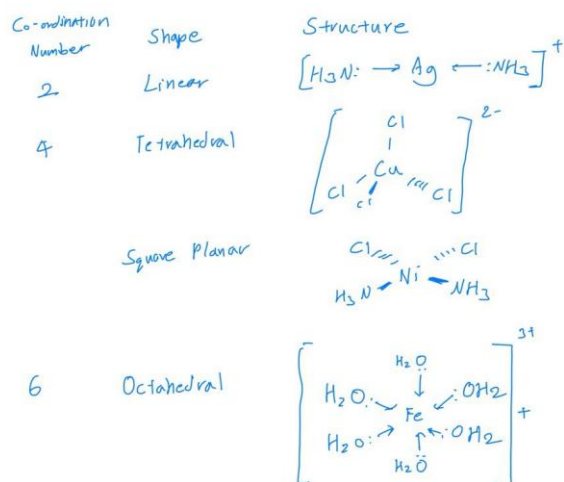 Co-ordination Number Shape Structure
2 Linear [H3N: → Ag ← :NH3]+
4 Tetrahedral [Cl Cu Cl Cl Cl]2-
Square Planar Cl Cl Ni H3N NH3
6 Octahedral [H2O: H2O: H2O Fe :OH2 :OH2 H2O]3+ +